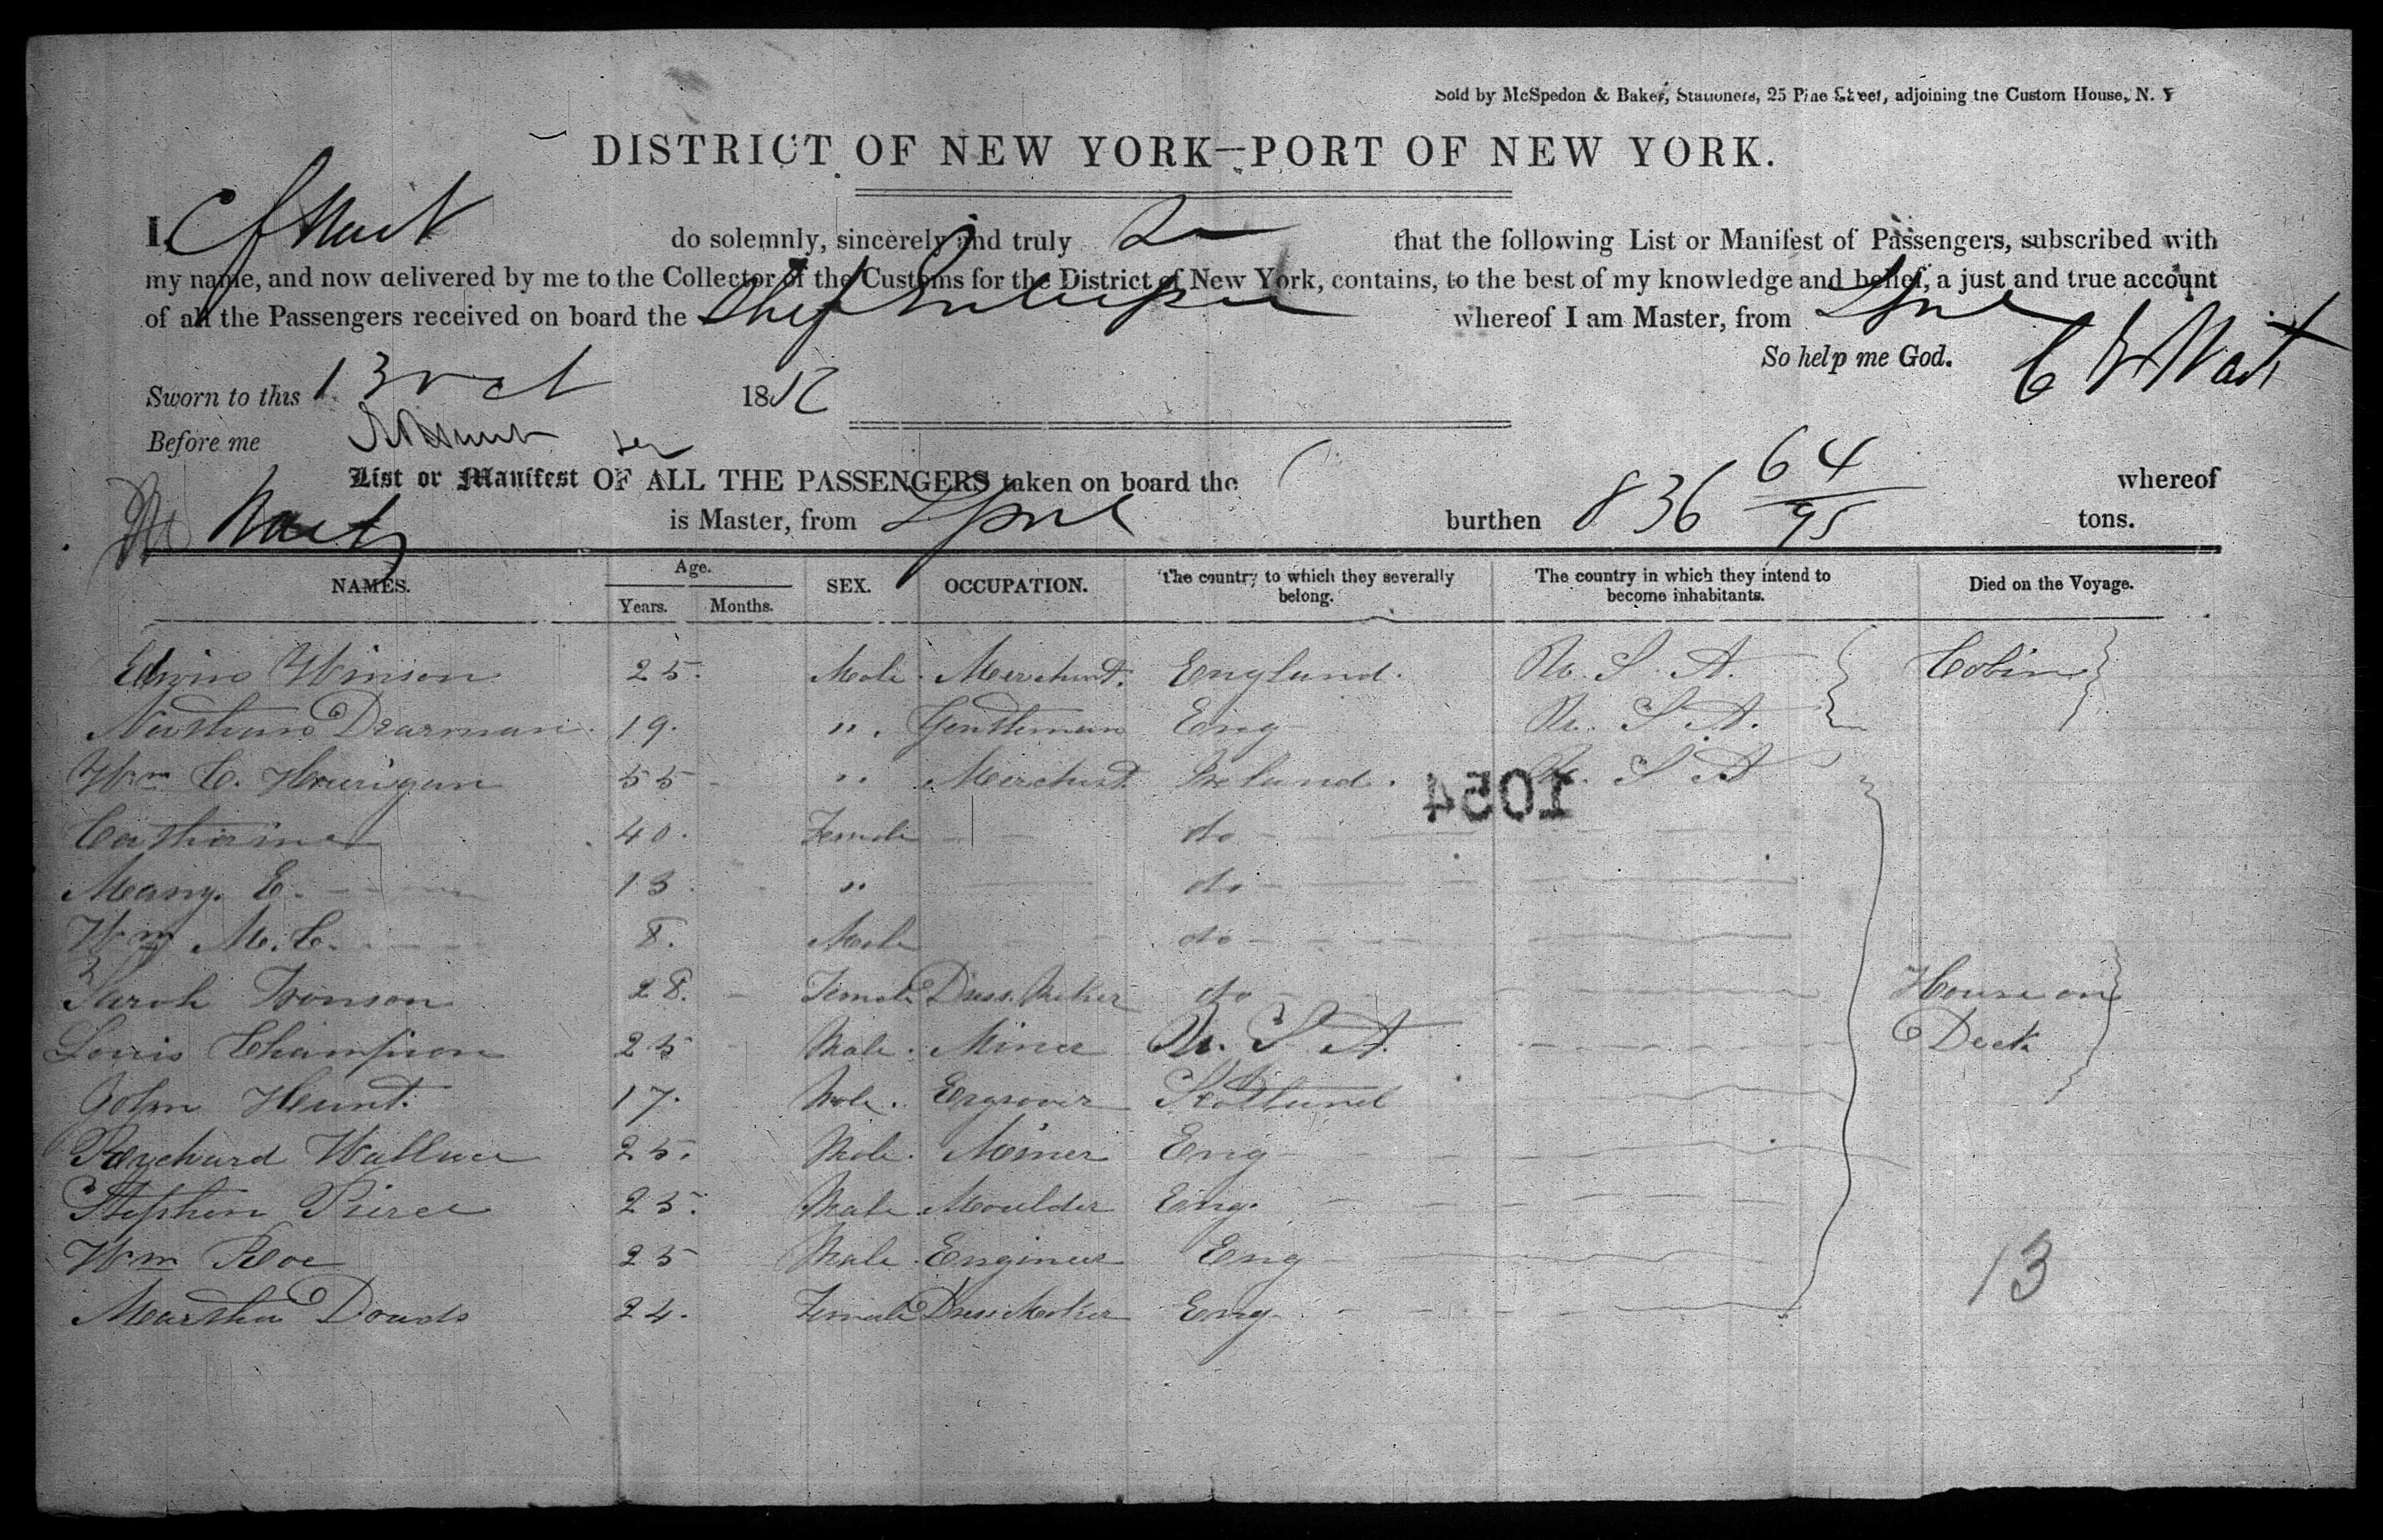 Sold by McSpedon & Baker, Stationers, 25 Pine Street, adjoining the Custom House, N. Y
DISTRICT OF NEW YORK—PORT OF NEW YORK.
I, do solemnly, sincerely and truly that the following List or Manifest of Passengers, subscribed with
my name, and now delivered by me to the Collector of the Customs for the District of New York, contains, to the best of my knowledge and belief, a just and true account
of all the Passengers received on board the Ship whereof I am Master, from Lpool
So help me God.
Sworn to this 13 Oct 1852
Before me
List or Manifest OF ALL THE PASSENGERS taken on board the whereof
is Master, from Lpool burthen 836 64/95 tons.
NAMES. Age. Years. Months. SEX. OCCUPATION. The country to which they severally belong. The country in which they intend to become inhabitants. Died on the Voyage.
Edwin Winson 25. Male. Merchant. England. U. S. A. Cabin
Dearman. 19. ". Gentleman Eng U. S. A.
Wm C. Hourigan 55 " Merchant Ireland. U. S. A
1054
Catharine 40. Female do
Mary. E. 13. " do
Wm M. C. 8. Male do
Sarah Ironson 28. Female Dress Maker do House on
Louis Champion 25 Male. Miner U. S. A. Deck
John Hunt. 17. Male. Engraver Scotland
Rychard Wallace 25. Male. Miner Eng
Stephen Pierce 25. Male Moulder Eng.
Wm Roe 25 Male. Engineer Eng
13
Martha Dowds 24. Female Dress Maker Eng